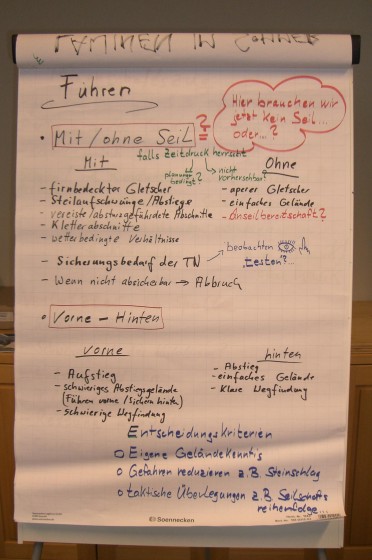 Führen
Hier brauchen wir
jetzt kein Seil...
oder...?
• Mit/ohne Seil ? =
falls Zeitdruck herrscht
Mit
planungsbedingt?
nicht vorhersehbar?
Ohne
- firnbedeckter Gletscher
- Steilaufschwünge/Abstiege
- vereiste/absturzgefährdete Abschnitte
- Kletterabschnitte
- wetterbedingte Verhältnisse
- aperer Gletscher
- einfaches Gelände
- Anseilbereitschaft?
- Sicherungsbedarf der TN → beobachten
testen?...
- Wenn nicht absicherbar → Abbruch
• Vorne - Hinten
vorne
- Aufstieg
- schwieriges Abstiegsgelände
(Führen vorne / Sichern hinten)
- schwierige Wegfindung
hinten
- Abstieg
- einfaches Gelände
- Klare Wegfindung
Entscheidungskriterien
o Eigene Geländekenntnis
o Gefahren reduzieren z.B. Steinschlag
o taktische Überlegungen z.B. Seilschafts
reihenfolge...
Soennecken